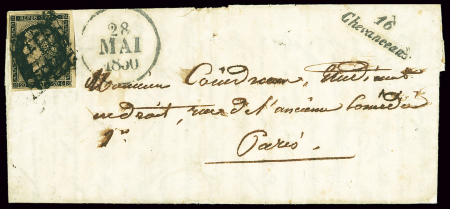 28
MAI
1850
16
Chevanceaux
Monsieur Étudiant
en droit, rue de l'ancienne comédie
Paris.